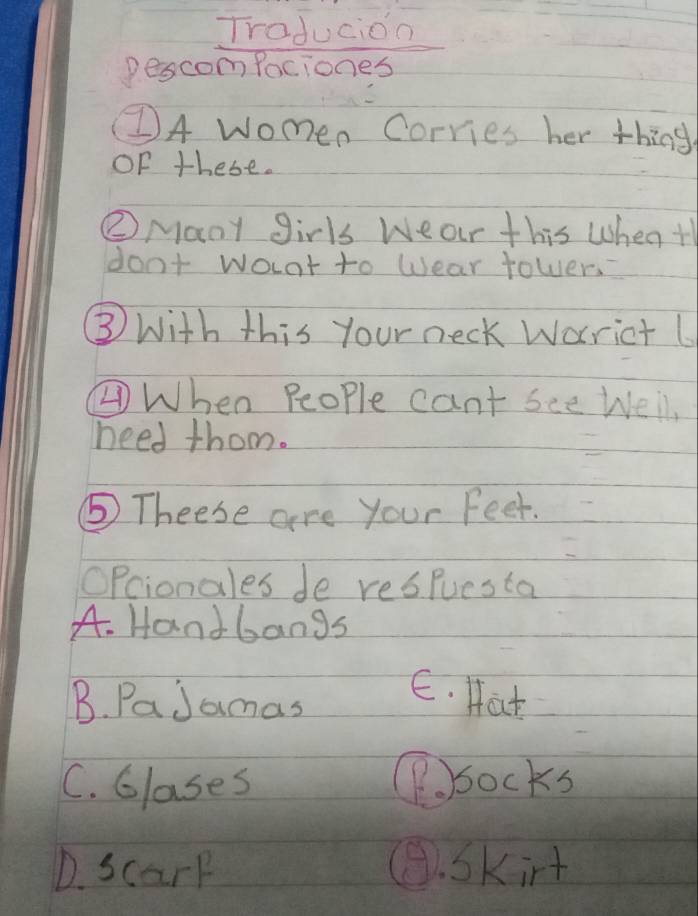 Traducion
Descompociones
① A Women Corries her thing
OF these.
② Many girls Wear this when th
dont Want to Wear tower.
③ With this your neck Warict
④ When People cant see Well,
need thom.
⑤ Theese are your Feet.
OPcionales de respuesta
A. Handbangs
B. Pajamas
E. Hat
C. Glases
F. Socks
D. Scarf
Skirt